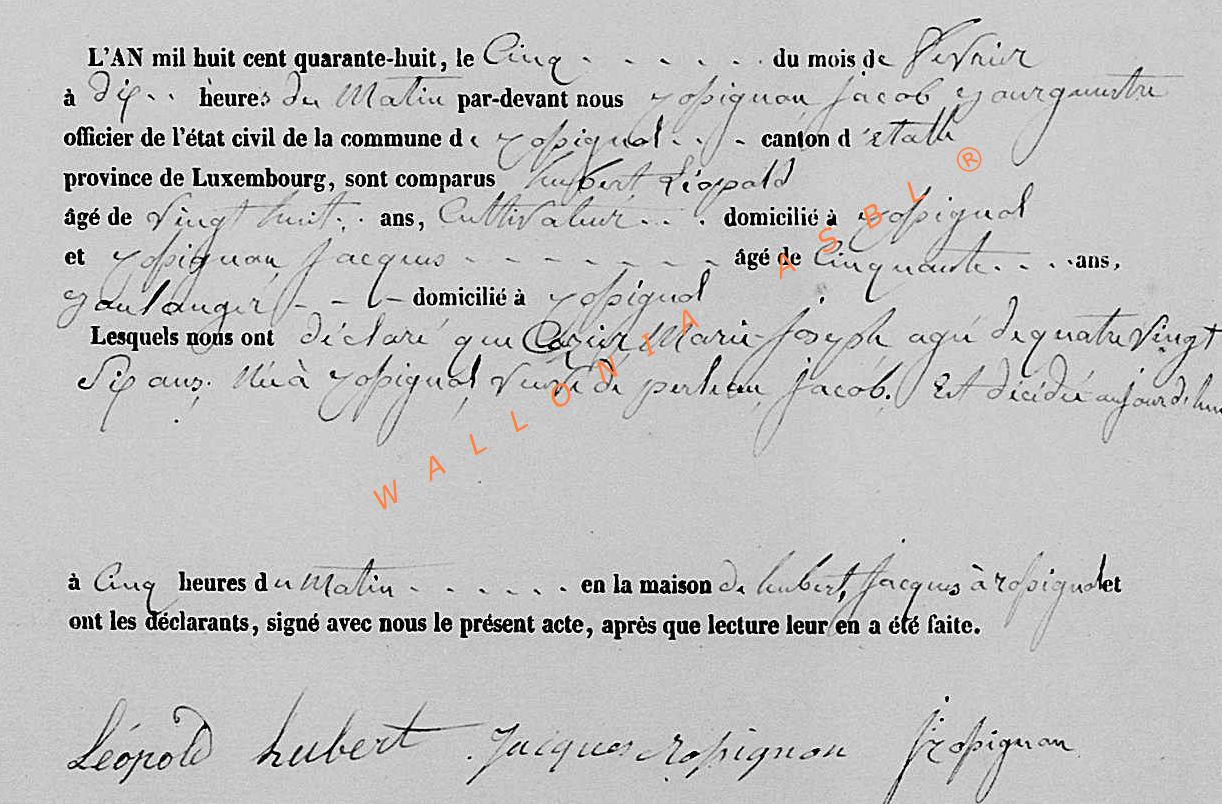 L'AN mil huit cent quarante-huit, le Cinq . . . . . . du mois de fevrier
à dix . . heures du Matin par-devant nous rossignon jacob Bourgmestre
officier de l'état civil de la commune de rossignol . . - canton d'étalle
province de Luxembourg, sont comparus hubert Léopold
âgé de Vingt huit . . ans, Cultivateur . . . domicilié à rossignol
et rossignon jacques - - - - - - - - âgé de Cinquante . . . . ans,
Boulanger - - - domicilié à rossignol
Lesquels nous ont déclaré que Marie-joseph agée de quatre Vingt
Six ans. Née à rossignol, Veuve de jacob. Est décédée aujourd'hui
à Cinq heures du Matin . . . . . . en la maison de hubert, jacques à rossignol et
ont les déclarants, signé avec nous le présent acte, après que lecture leur en a été faite.
Léopold hubert jacques rossignon j rossignon
WALLONIA ASBL ®